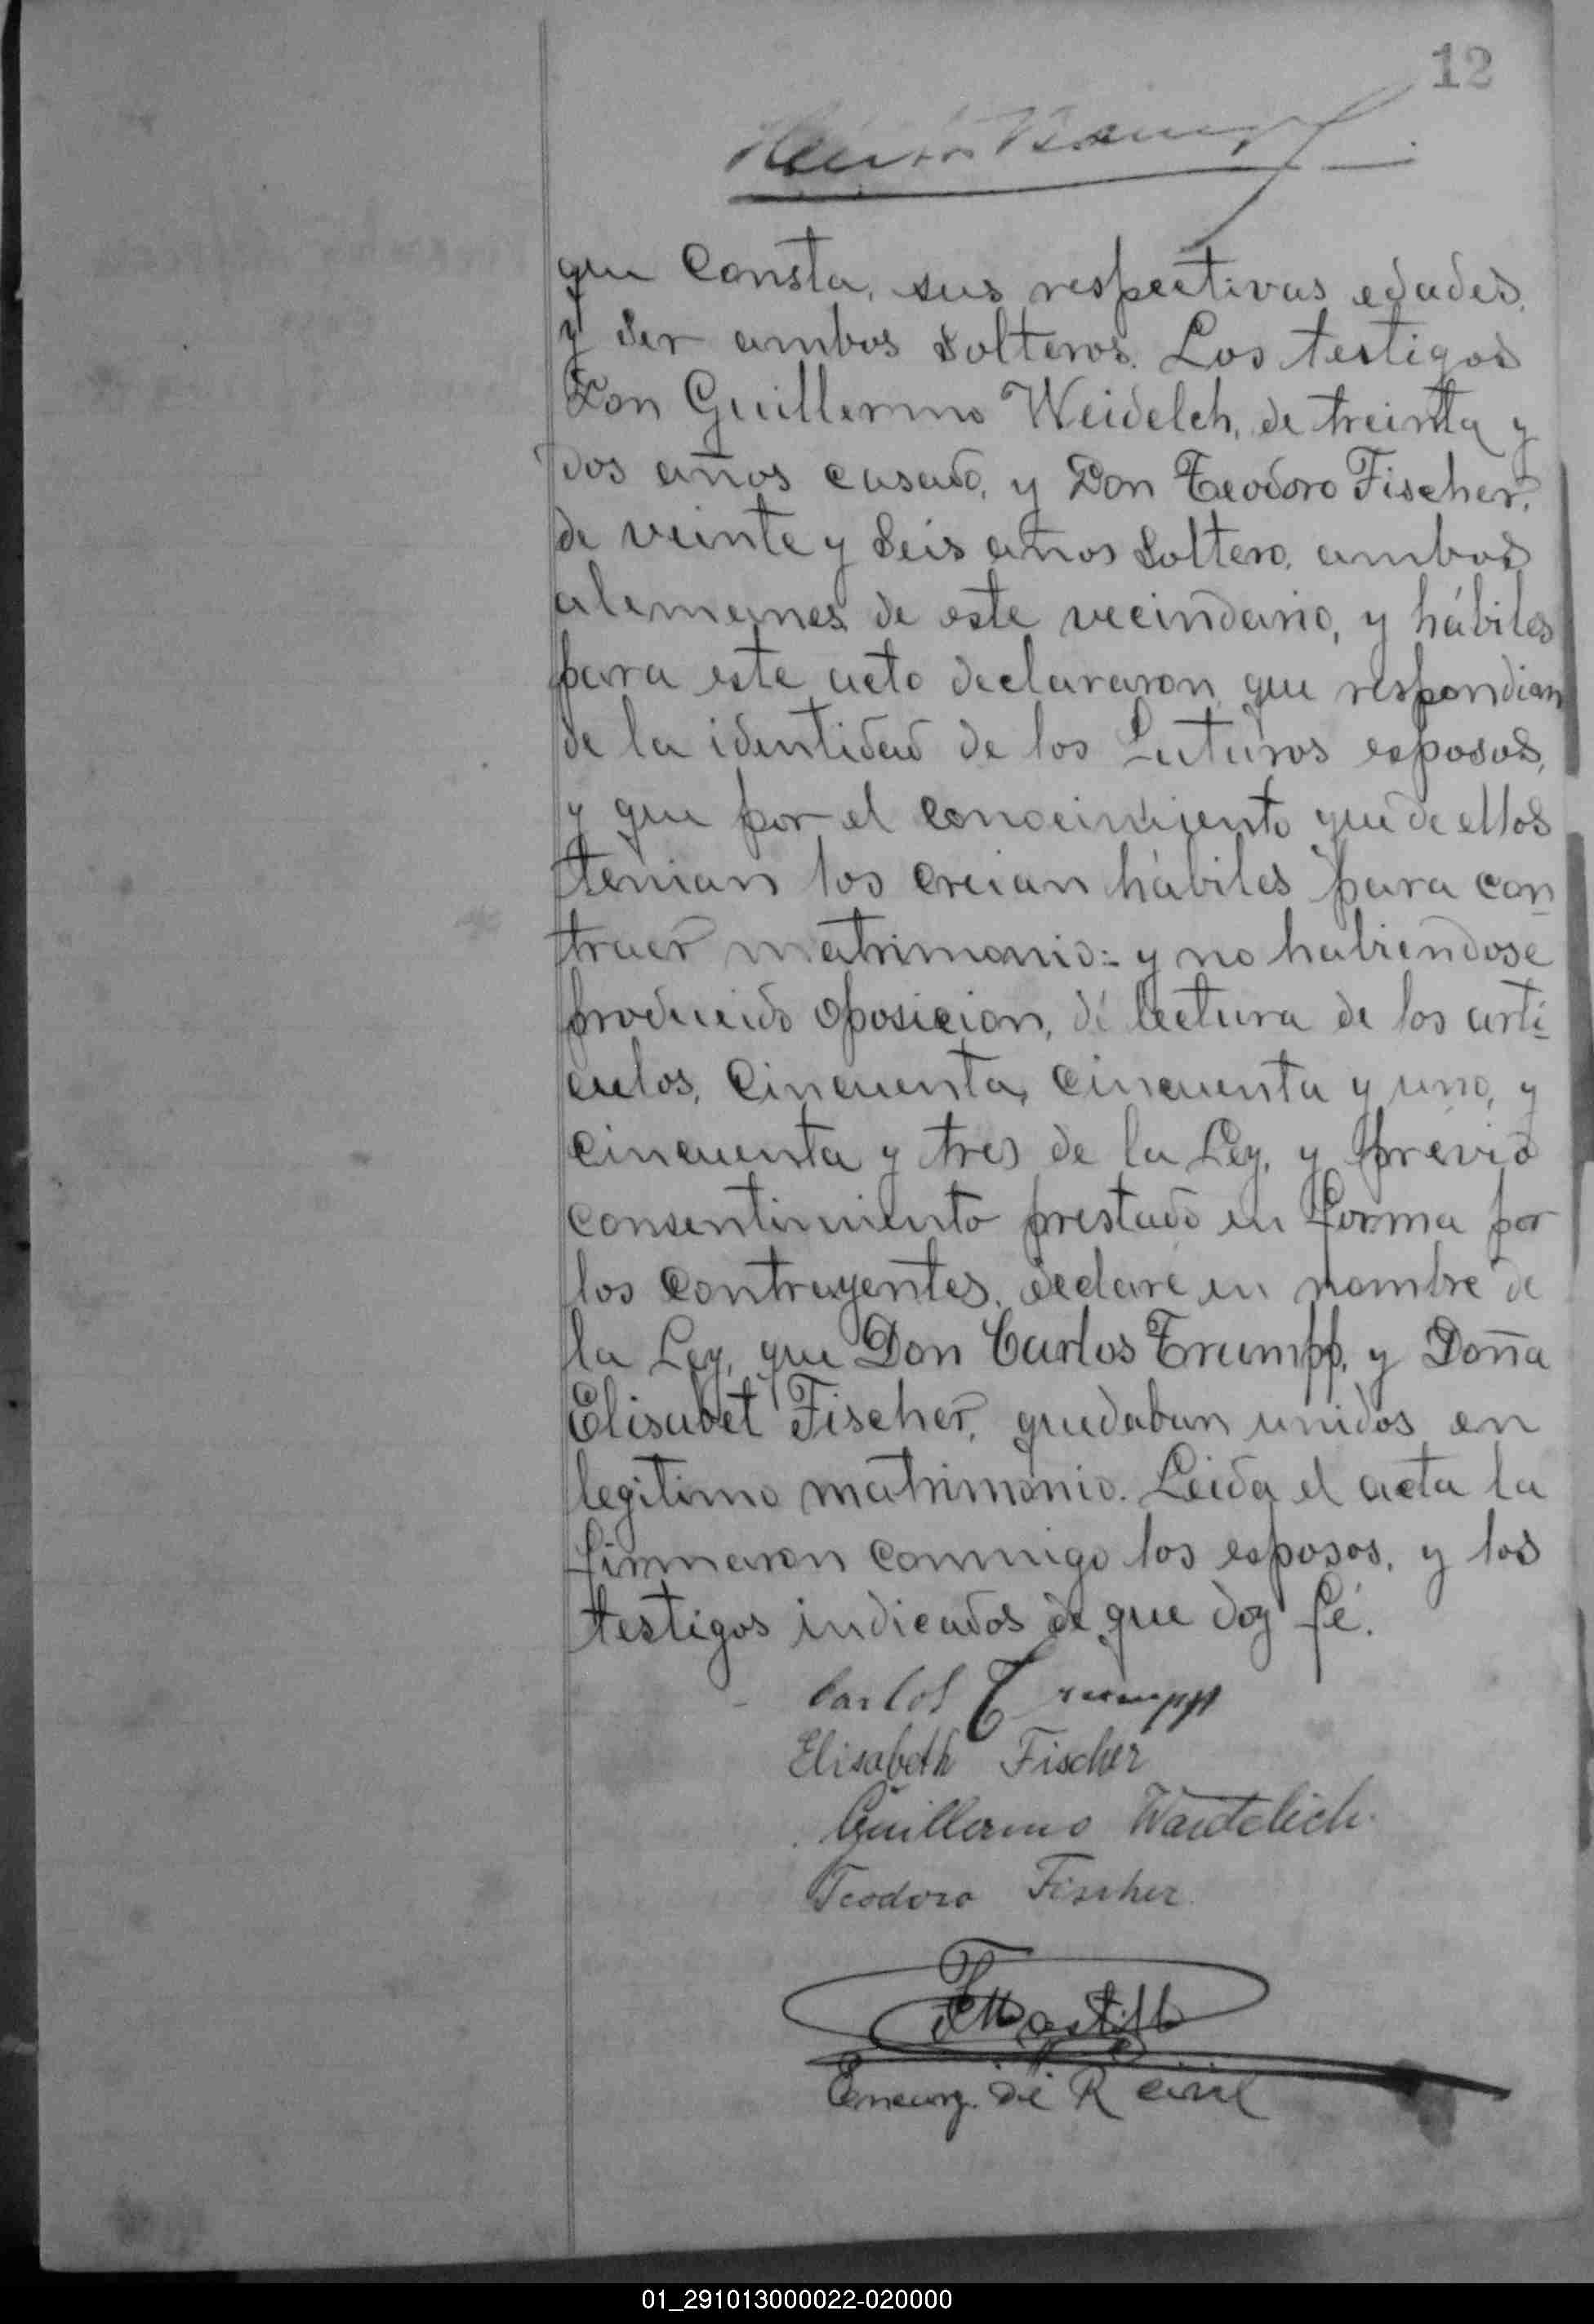 12
que Consta, sus respectivas edades,
y Ser ambos Solteros. Los testigos
Don Guillermo Weidelch, de treinta y
dos años casado, y Don Teodoro Fischer,
de veinte y Seis años Soltero, ambos
alemanes de este vecindario, y hábiles
para este acto declararon que respondian
de la identidad de los futuros esposos,
y que por el conocimiento que de ellos
tenian los creian hábiles para con
traer matrimonio: y no habiendose
producido oposicion, dí lectura de los artí
culos, Cincuenta, Cincuenta y uno, y
Cincuenta y tres de la Ley, y prévio
consentimiento prestado en forma por
los Contrayentes, declaré en nombre de
la Ley, que Don Carlos Trumpp, y Doña
Elisabet Fischer, quedaban unidos en
legitimo matrimonio. Leida el acta la
firmaron conmigo los esposos, y los
testigos indicados de que doy fé.
Carlos Trumpp
Elisabeth Fischer
Guillermo Waidelich.
Teodoro Fischer
Encarg. de R civil
01_291013000022-020000